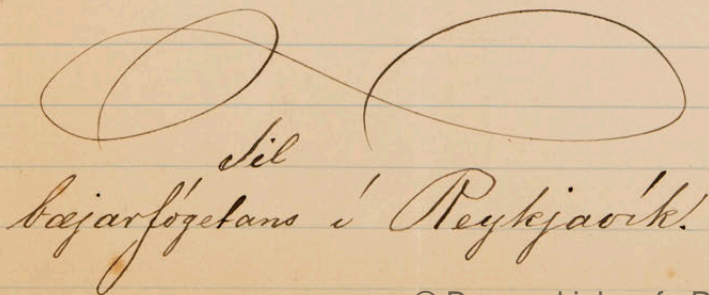 Til
bæjarfógetans í Reykjavík.